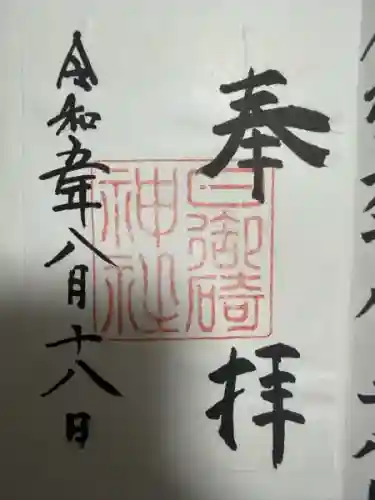 奉拝
日御碕
神社
令和五年八月十八日